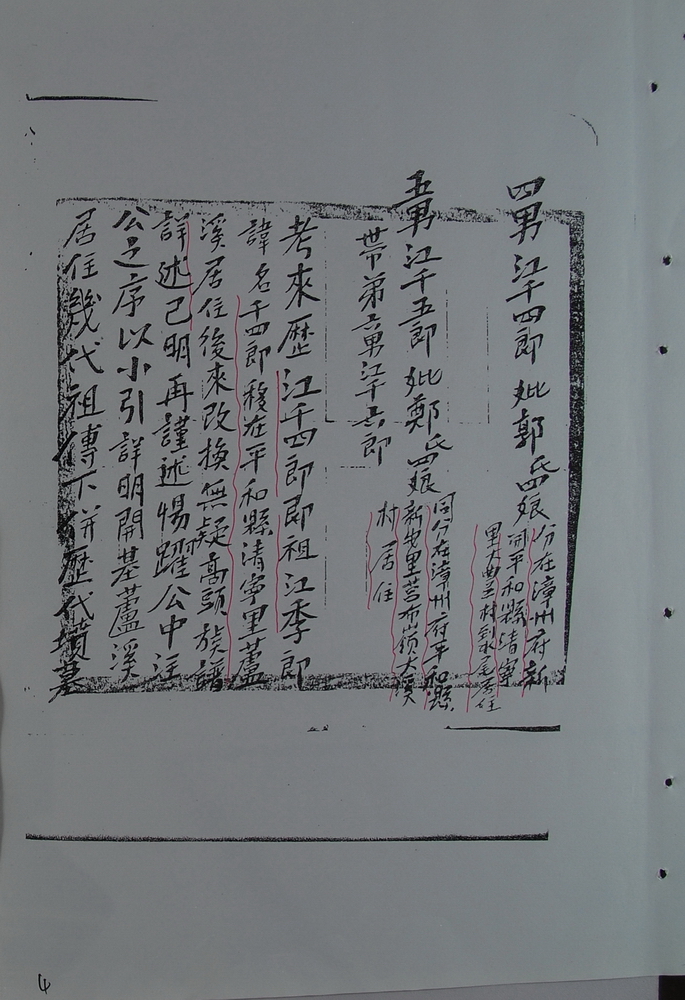 四男江千四郎妣郭氏四娘
分在漳州府新
開平和縣清寧
里大曲蘆村到水尾居住
五男江千五郎妣鄭氏四娘
同分在漳州府平和縣
新安里莒布山嶺大溪
村居住
帶第六男江千六郎
考來歷江千四郎即祖江季郎
諱名千四郎移在平和縣清寧里蘆
溪居住後來改換無疑高頭族譜
詳述已明再謹述惕躍公中注
公之序以小引詳明開基蘆溪
居住幾代祖傳下併歷代墳墓
4